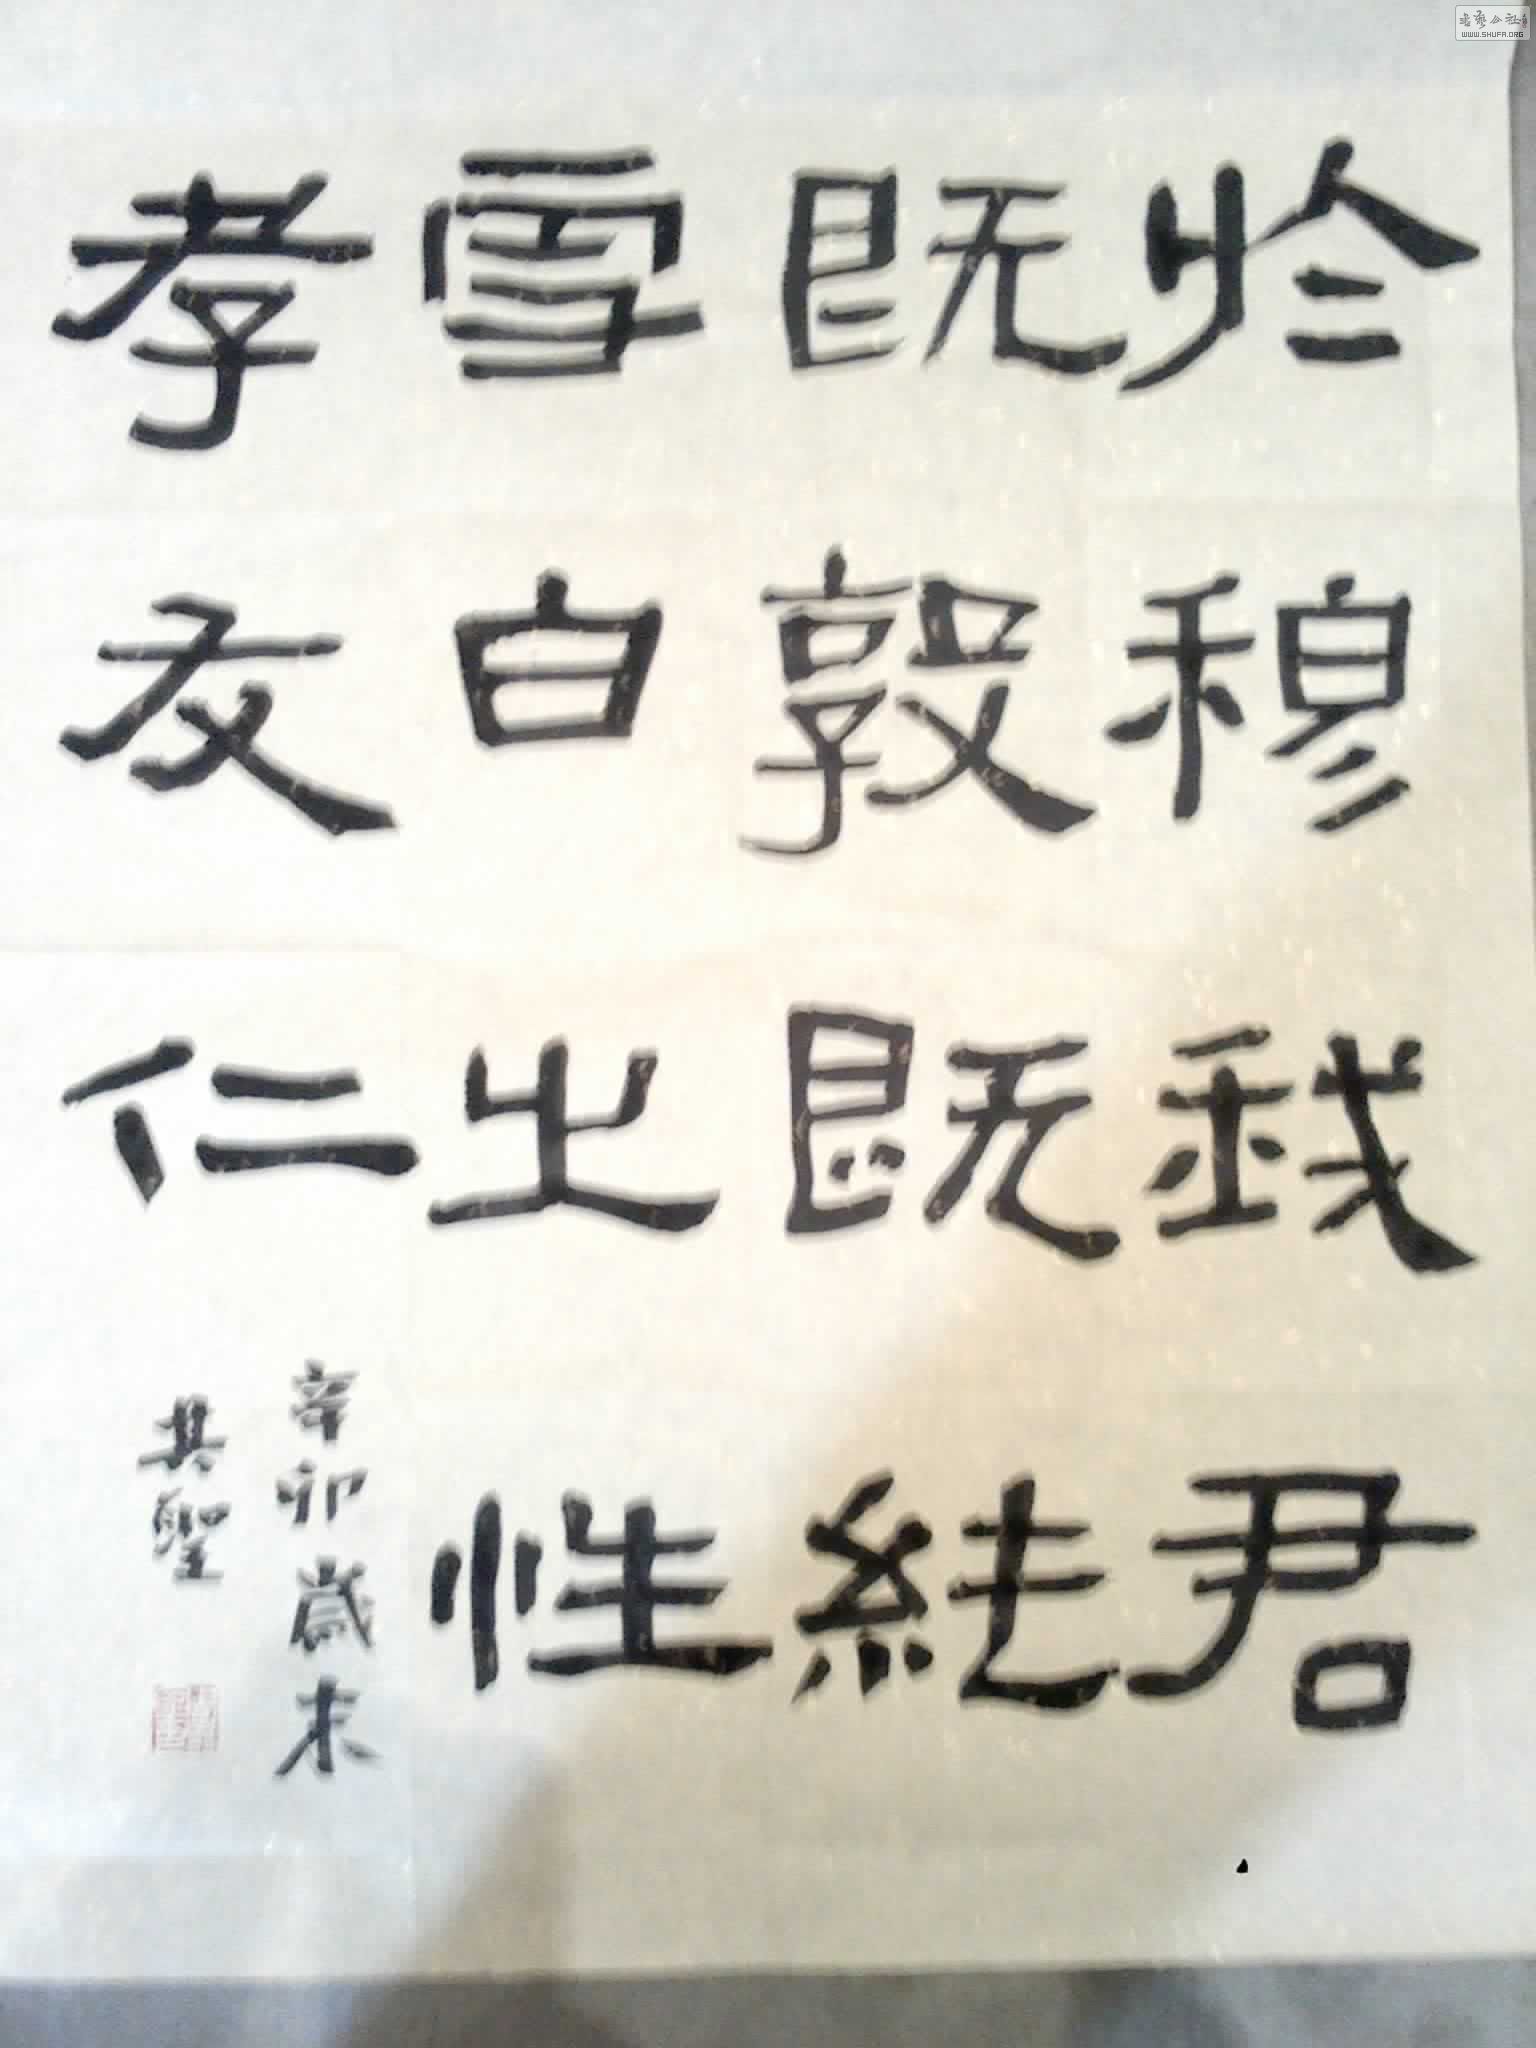 於穆我君
既敦既純
雪白之性
孝友仁
辛卯歲末
其聖
書藝公社
WWW.SHUFA.ORG